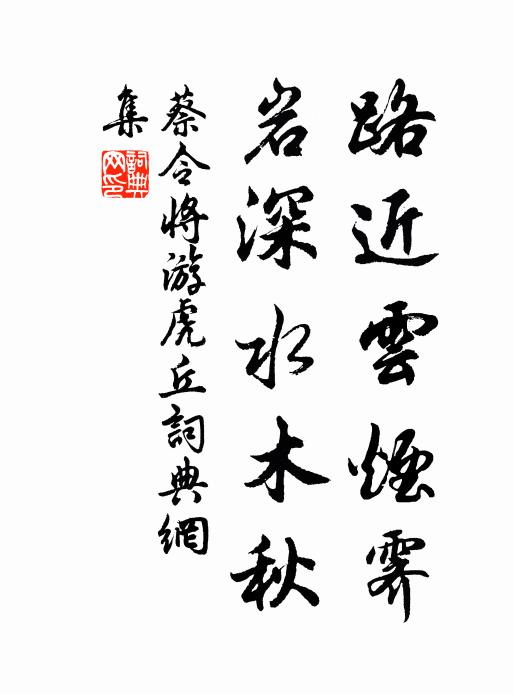 路近雲煙霽
岩深水木秋
蔡令將游虎丘詞典網
集
詞典
网印